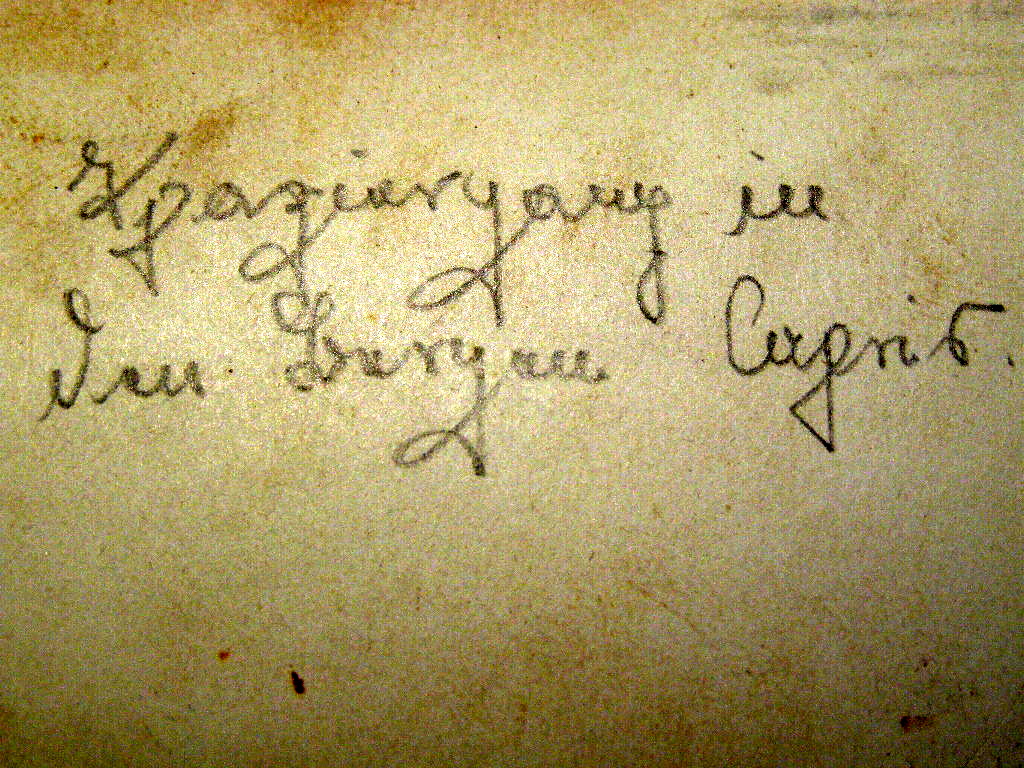 Spaziergang in
den Bergen Capris.